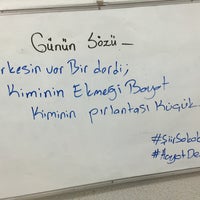 Günün Sözü_
rkesin var Bir derdi;
Kiminin Ekmeği Bayat
Kiminin pırlantası Küçük..
#ŞiirSokak
#HayatDe